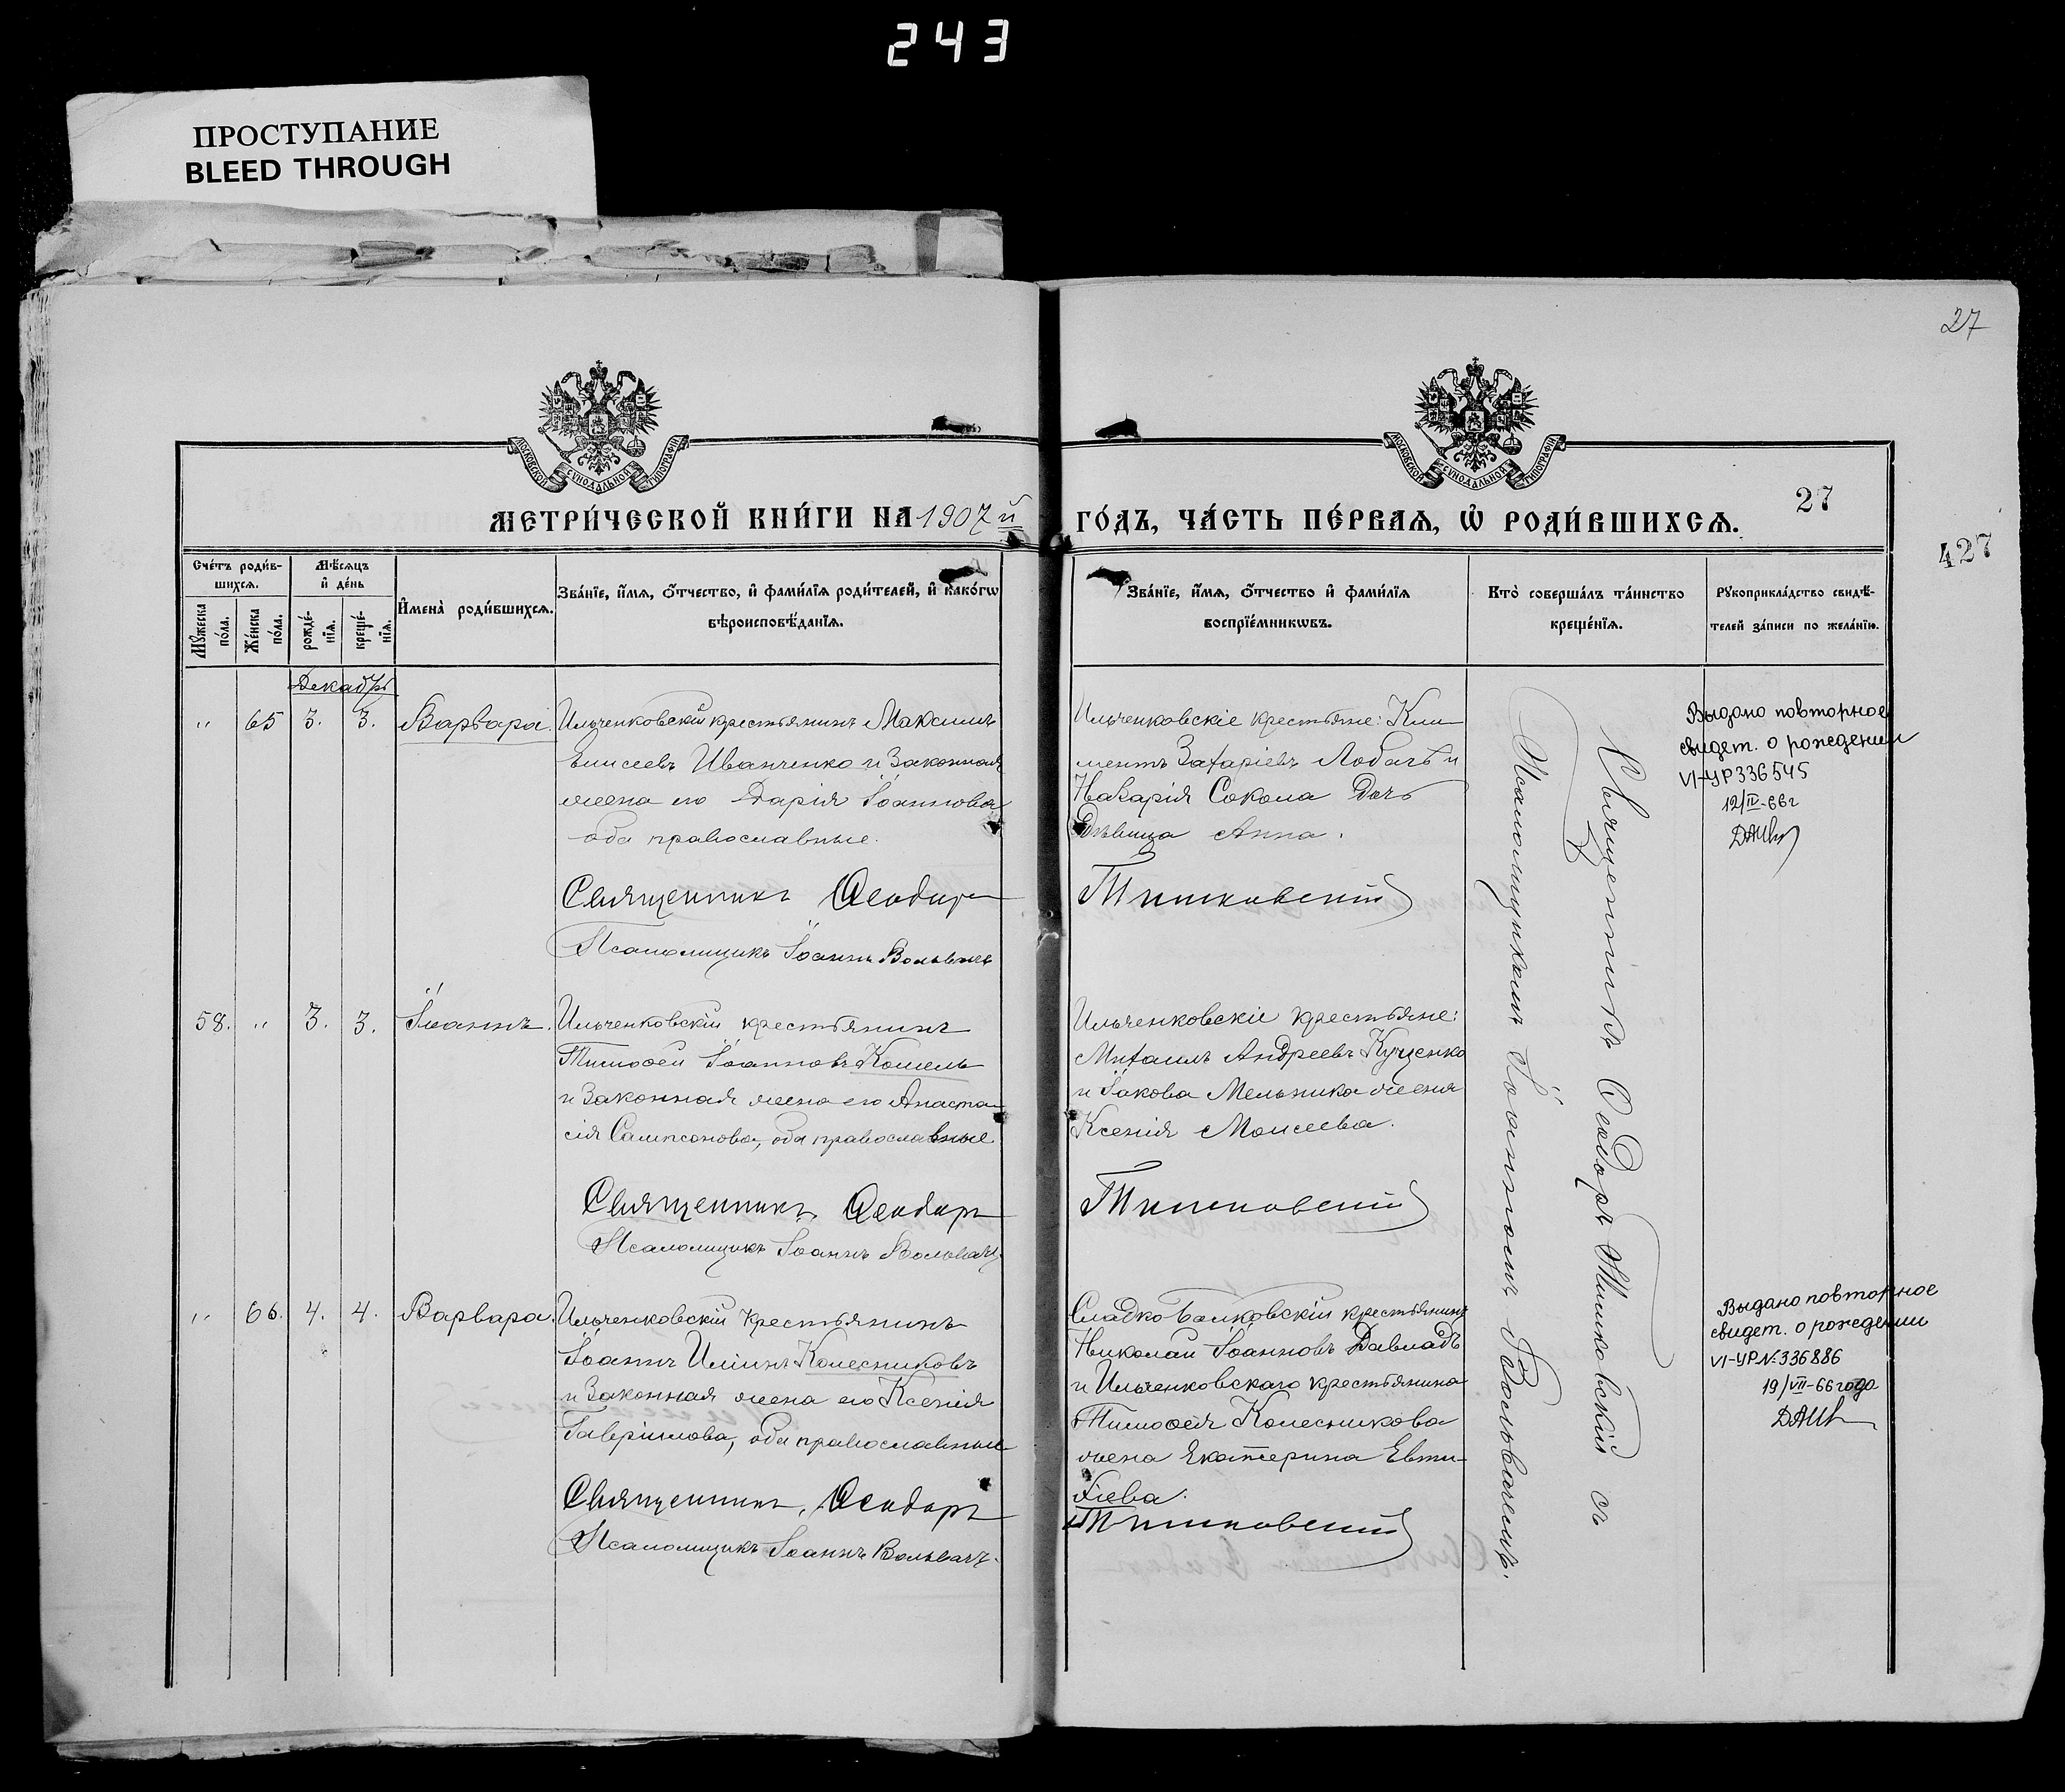 243
ПРОСТУПАНИЕ
BLEED THROUGH
27
МОСКОВСКОЙ СѴНОДАЛЬНОЙ ТИПОГРАФІИ
МОСКОВСКОЙ СѴНОДАЛЬНОЙ ТИПОГРАФІИ
МЕТРИ́ЧЕСКОЙ КНИ́ГИ НА 1907 й
ГО́ДЪ, ЧА́СТЬ ПЕ́РВАѦ, Ѡ҆ РОДИ́ВШИХСѦ.
27
427
Сче́тъ роди́в-
шихсѧ.
Мꙋ́жеска по́ла.
Же́нска по́ла.
Мѣ́сѧцъ
и҆ де́нь
рожде́-
нїѧ.
креще́-
нїѧ.
И҆мена̀ роди́вшихсѧ.
Зва́нїе, и҆́мѧ, ѻ҆́тчество, и҆ фами́лїѧ роди́телей, и҆ како́гѡ
вѣроисповѣ́данїѧ.
Зва́нїе, и҆́мѧ, ѻ҆́тчество и҆ фами́лїѧ
воспрїе́мникѡвъ.
Кто̀ соверша́лъ та́инство
креще́нїѧ.
Рꙋкоприкла́дство свидѣ́-
телей за́писи по жела́нїю.
Декабрь
" 65 3. 3. Варвара.
Ильченковскій крестьянинъ Максимъ
Елисеевъ Иванченко и законная
жена его Дарія Іоаннова
оба православные.
Священникъ Ѳеодоръ
Псаломщикъ Іоаннъ Вольвачъ
Ильченковскіе крестьяне: Кли-
ментъ Захаріевъ Лобачъ и
Назарія Сокола дочь
дѣвица Анна.
Тишковскій
Выдано повторное
свидет. о рождении
VI-УР 336545
12/IV-66г
58. " 3. 3. Іоаннъ.
Ильченковскій крестьянинъ
Тимоѳей Іоанновъ Комель
и законная жена его Анаста-
сія Сампсонова, оба православные.
Священникъ Ѳеодоръ
Псаломщикъ Іоаннъ Вольвачъ
Ильченковскіе крестьяне:
Михаилъ Андреевъ Куценко
и Іакова Мельника жена
Ксенія Моисеева.
Тишковскій
" 66. 4. 4. Варвара.
Ильченковскій крестьянинъ
Іоаннъ Иліинъ Колесниковъ
и законная жена его Ксенія
Гавріилова, оба православные
Священникъ Ѳеодоръ
Псаломщикъ Іоаннъ Вольвачъ.
Сладко Балковскій крестьянинъ
Николай Іоанновъ Давладъ
и Ильченковскаго крестьянина
Тимоѳея Колесникова
жена Екатерина Евти-
хіева.
Тишковскій
Священникъ Ѳеодоръ Тишковскій съ
Псаломщикомъ Іоанномъ Вольвачемъ.
Выдано повторное
свидет. о рождении
VI-УР №336886
19/VII-66 года